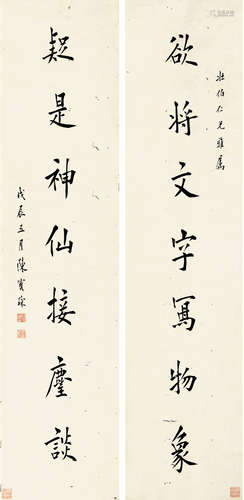 壯伯仁兄雅屬
欲將文字寫物象
疑是神仙接麈談
戊辰五月陳寶琛